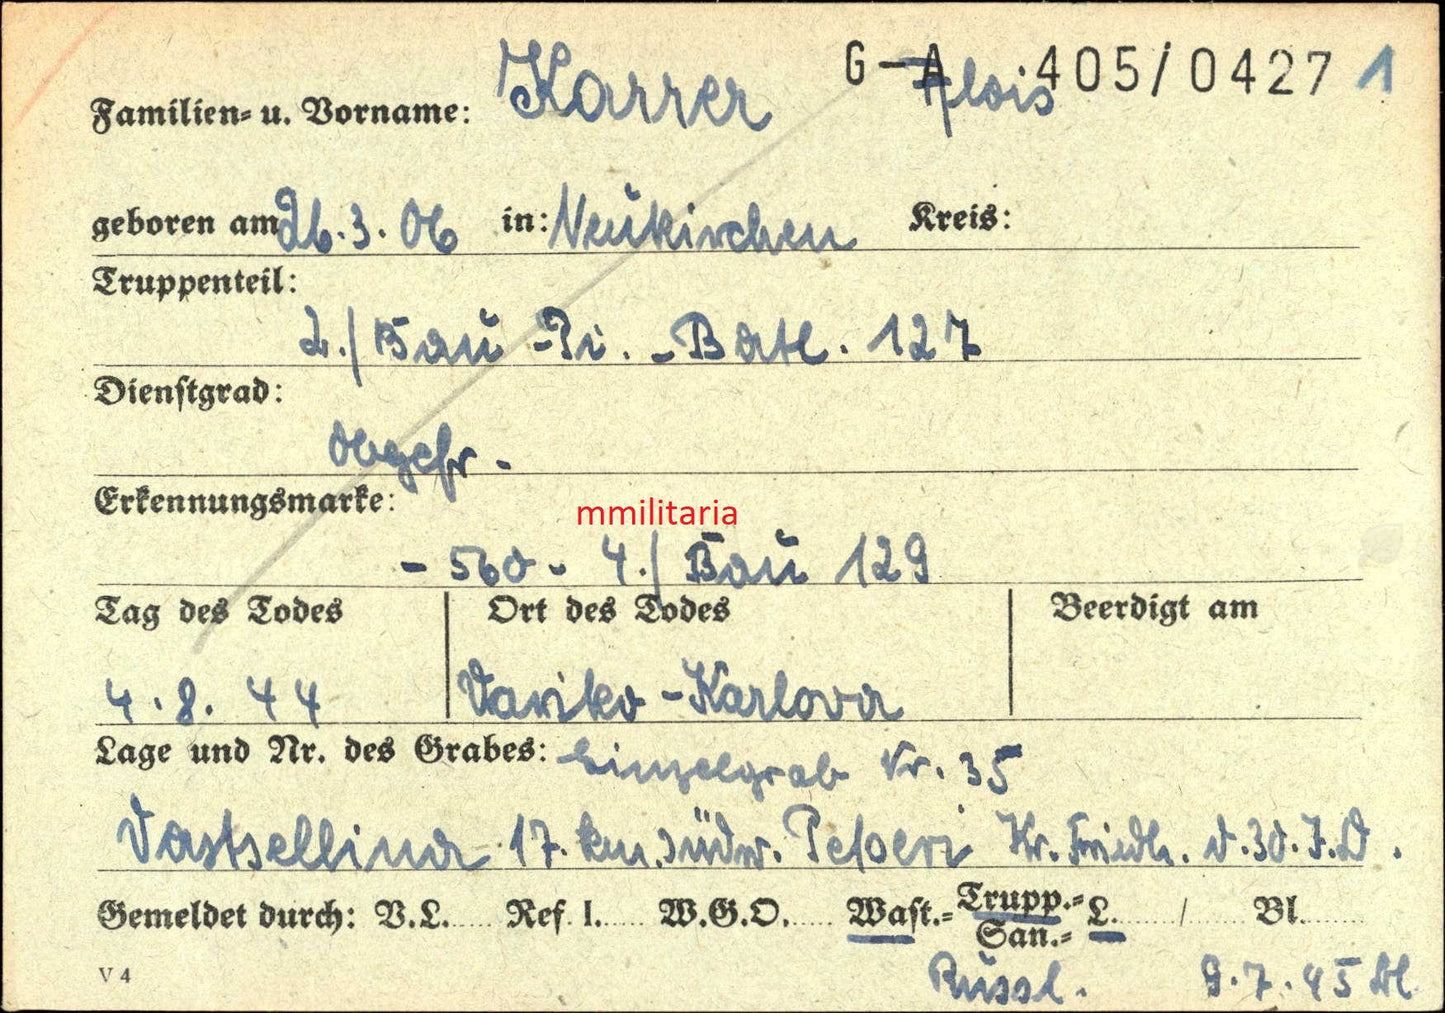 G-A 405/0427 1
Familien- u. Vorname: Karrer Alois
geboren am 26.3.06 in: Neukirchen Kreis:
Truppenteil:
2./Bau-Pi.-Batl. 127
Dienstgrad:
Obgefr.
Erkennungsmarke:
mmilitaria
- 560 - 4./Bau 129
Tag des Todes Ort des Todes Beerdigt am
4.8.44 Variko-Karlova
Lage und Nr. des Grabes: Einzelgrab Nr. 35
Vastsellina 17 km südw. Petseri Kr. Friedh. d. 30. I.D.
Gemeldet durch: V.L. Ref. I. W.G.O. Wast.= Trupp.= L. / Bl.
San.=
V 4 Russl. 9.7.45